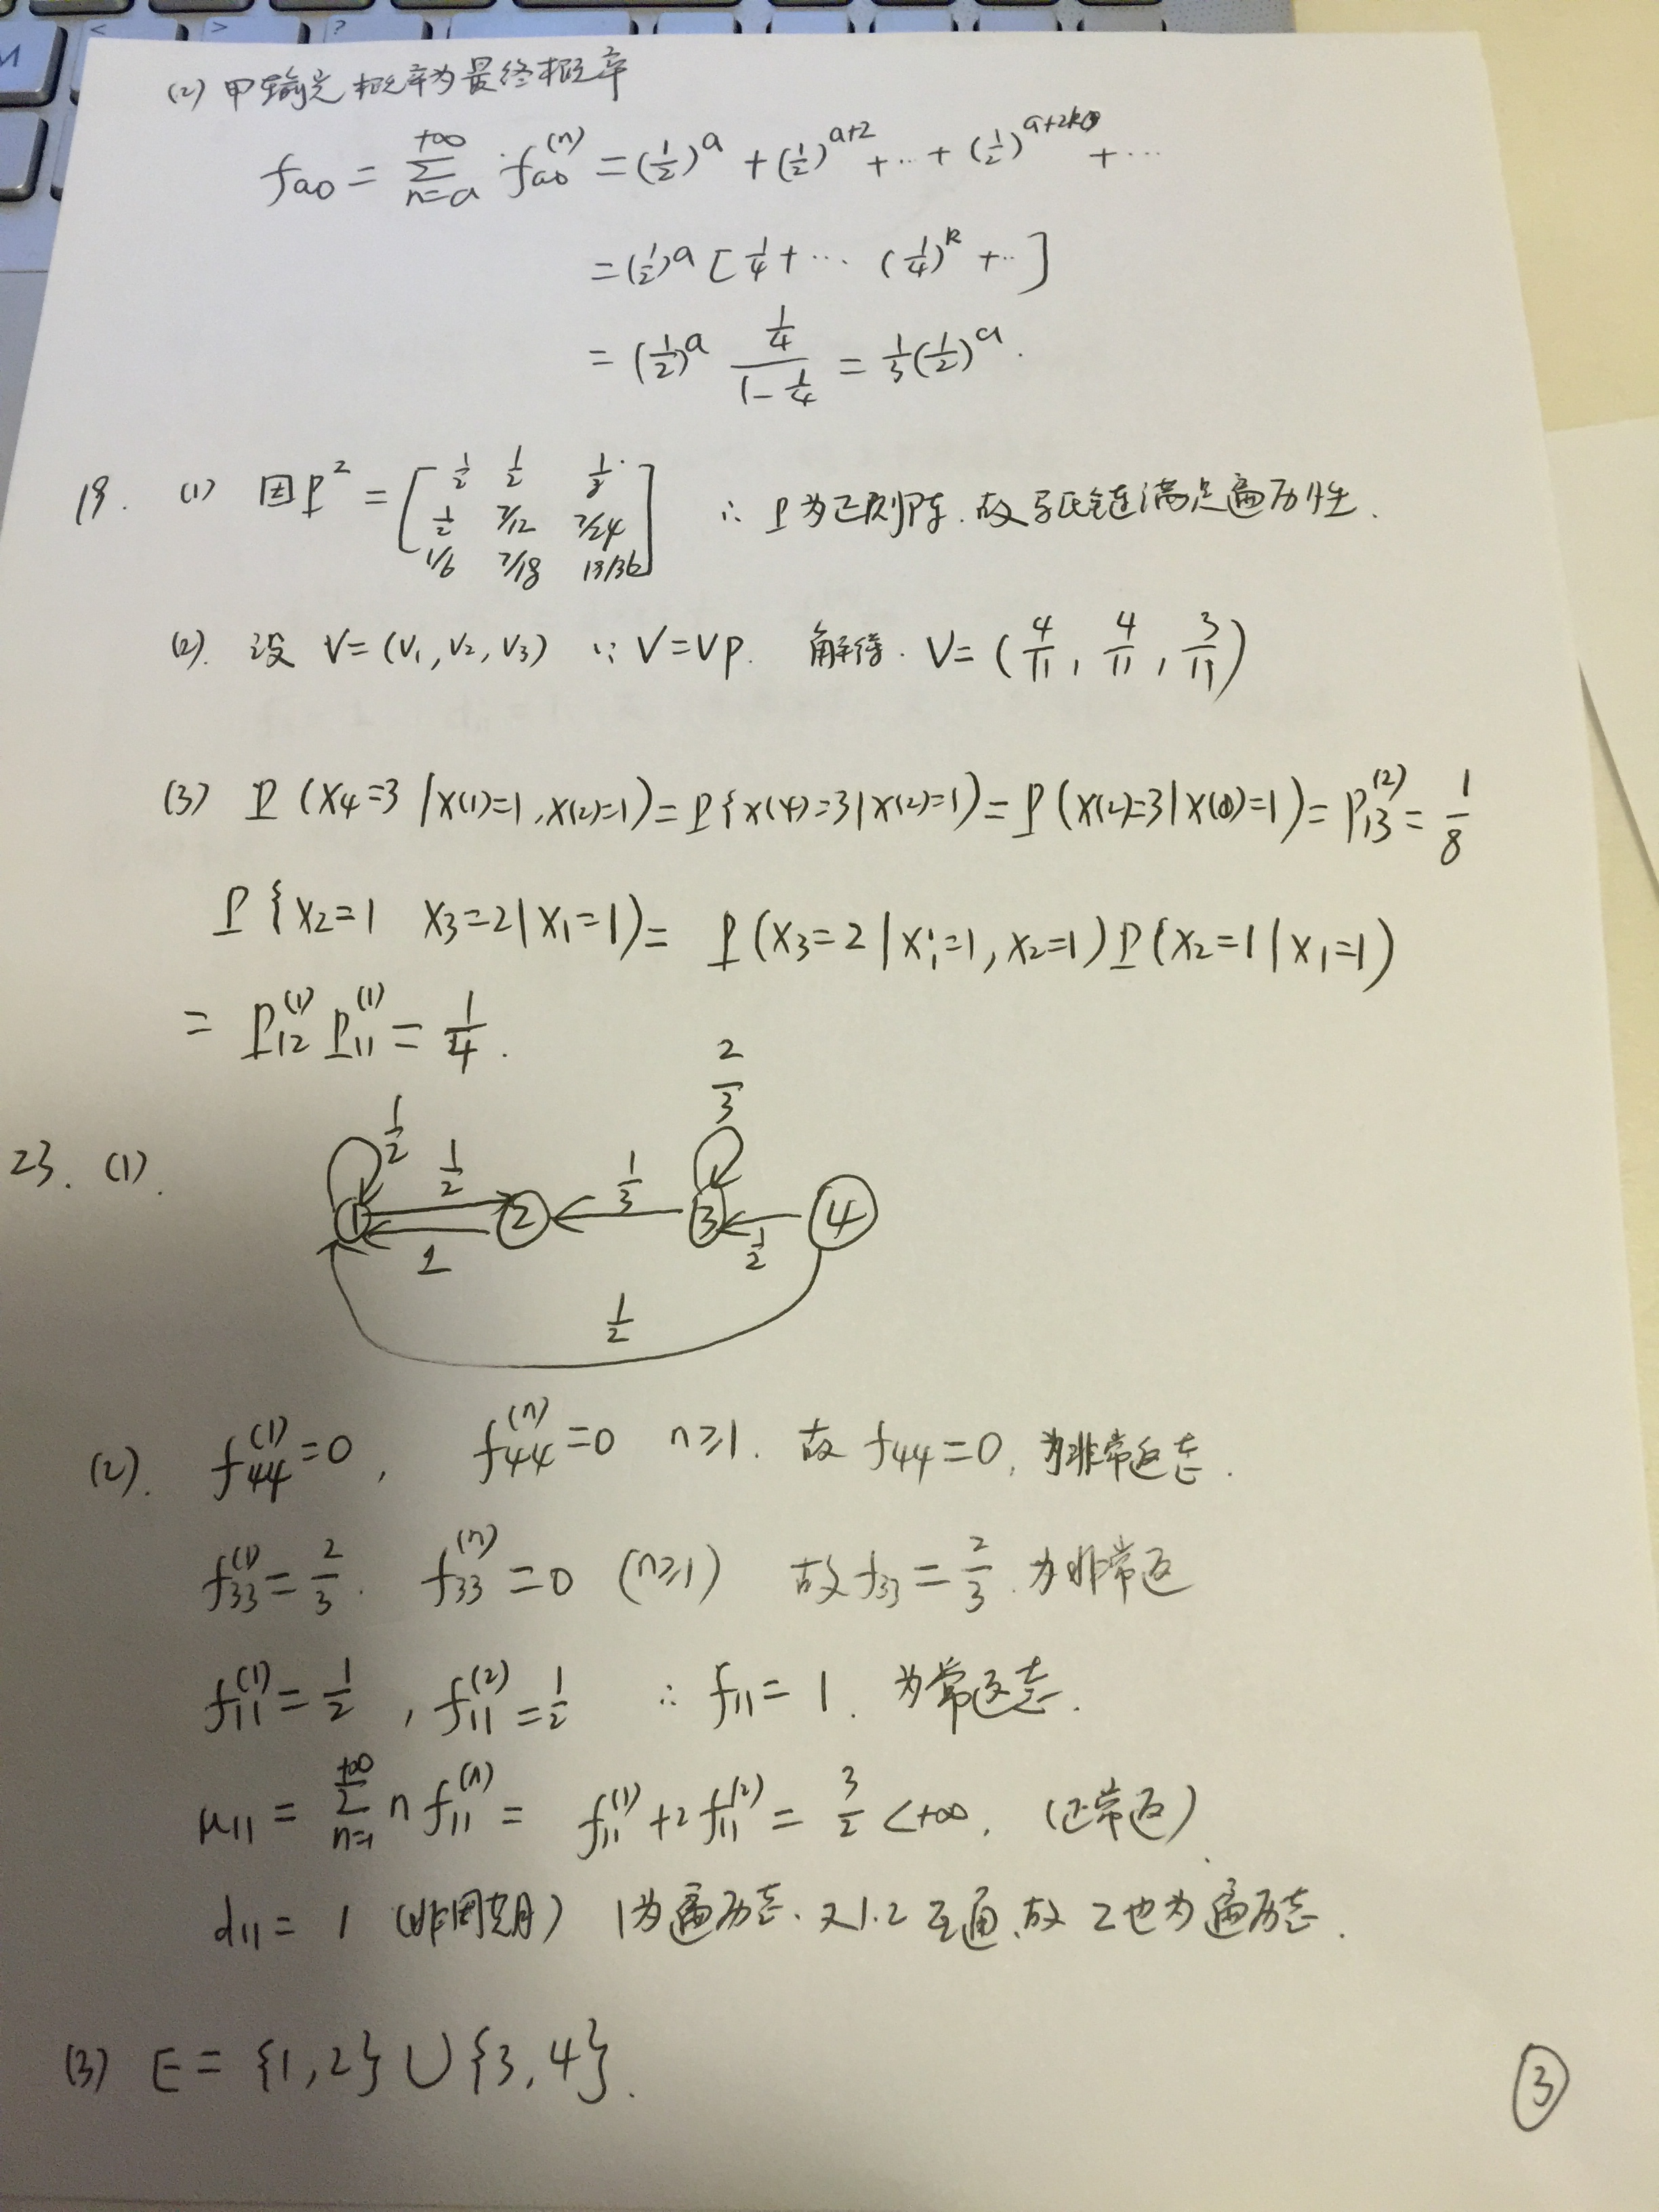 (2) 甲输光概率为最终概率
f_{a0} = \sum_{n=a}^{+∞} f_{a0}^{(n)} = (1/2)^a + (1/2)^{a+2} + ⋯ + (1/2)^{a+2k} + ⋯
= (1/2)^a [1/4 + ⋯ (1/4)^k + ⋯]
= (1/2)^a \frac{1/4}{1-1/4} = 1/3 (1/2)^a .
19. (1) 因 P^2 = [ 1/2 1/2
1/2 7/12 7/24
1/6 7/18 ] ∴ P为正则阵. 故马氏链满足遍历性.
(2). 设 V=(V_1, V_2, V_3) ∵ V=VP. 解得. V=(4/11, 4/11, 3/11)
(3) P(X_4=3 | X(1)=1, X(2)=1) = P{X(4)=3 | X(2)=1) = P(X(2)=3 | X(0)=1) = P_{13}^{(2)} = 1/8
P{X_2=1 X_3=2 | X_1=1) = P(X_3=2 | X_1=1, X_2=1) P(X_2=1 | X_1=1)
= P_{12}^{(1)} P_{11}^{(1)} = 1/4 .
2/3
1/2
23. (1). 1/2 1/3
1 2 3 4
1 1/2
1/2
(2). f_{44}^{(1)}=0, f_{44}^{(n)}=0 n≥1. 故 f_{44}=0, 为非常返态.
f_{33}^{(1)}=2/3. f_{33}^{(n)}=0 (n≥1) 故 f_{33}=2/3. 为非常返
f_{11}^{(1)}=1/2, f_{11}^{(2)}=1/2 ∴ f_{11}=1. 为常返态.
μ_{11} = \sum_{n=1}^{+∞} n f_{11}^{(n)} = f_{11}^{(1)}+2f_{11}^{(2)} = 3/2 <+∞. (正常返)
d_{11}=1 (非周期) 1为遍历态. 又1.2互通, 故2也为遍历态.
(3) E={1,2}∪{3,4}.
③